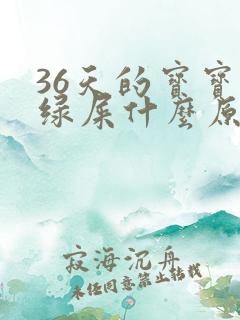 36天的宝宝
绿屎什麼原
寂海沉舟
未经同意禁止转载